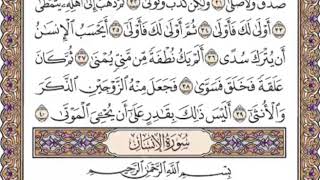 صَدَّقَ وَلَا صَلَّىٰ ٣١ وَلَٰكِن كَذَّبَ وَتَوَلَّىٰ ٣٢ ثُمَّ ذَهَبَ إِلَىٰٓ أَهْلِهِۦ يَتَمَطَّىٰٓ
٣٣ أَوْلَىٰ لَكَ فَأَوْلَىٰ ٣٤ ثُمَّ أَوْلَىٰ لَكَ فَأَوْلَىٰٓ ٣٥ أَيَحْسَبُ ٱلْإِنسَٰنُ
أَن يُتْرَكَ سُدًى ٣٦ أَلَمْ يَكُ نُطْفَةً مِّن مَّنِىٍّ يُمْنَىٰ ٣٧ ثُمَّ كَانَ
عَلَقَةً فَخَلَقَ فَسَوَّىٰ ٣٨ فَجَعَلَ مِنْهُ ٱلزَّوْجَيْنِ ٱلذَّكَرَ
وَٱلْأُنثَىٰٓ ٣٩ أَلَيْسَ ذَٰلِكَ بِقَٰدِرٍ عَلَىٰٓ أَن يُحْـِۧىَ ٱلْمَوْتَىٰ ٤٠
سُورَةُ الإِنسَانِ
بِسْمِ ٱللَّهِ ٱلرَّحْمَٰنِ ٱلرَّحِيمِ